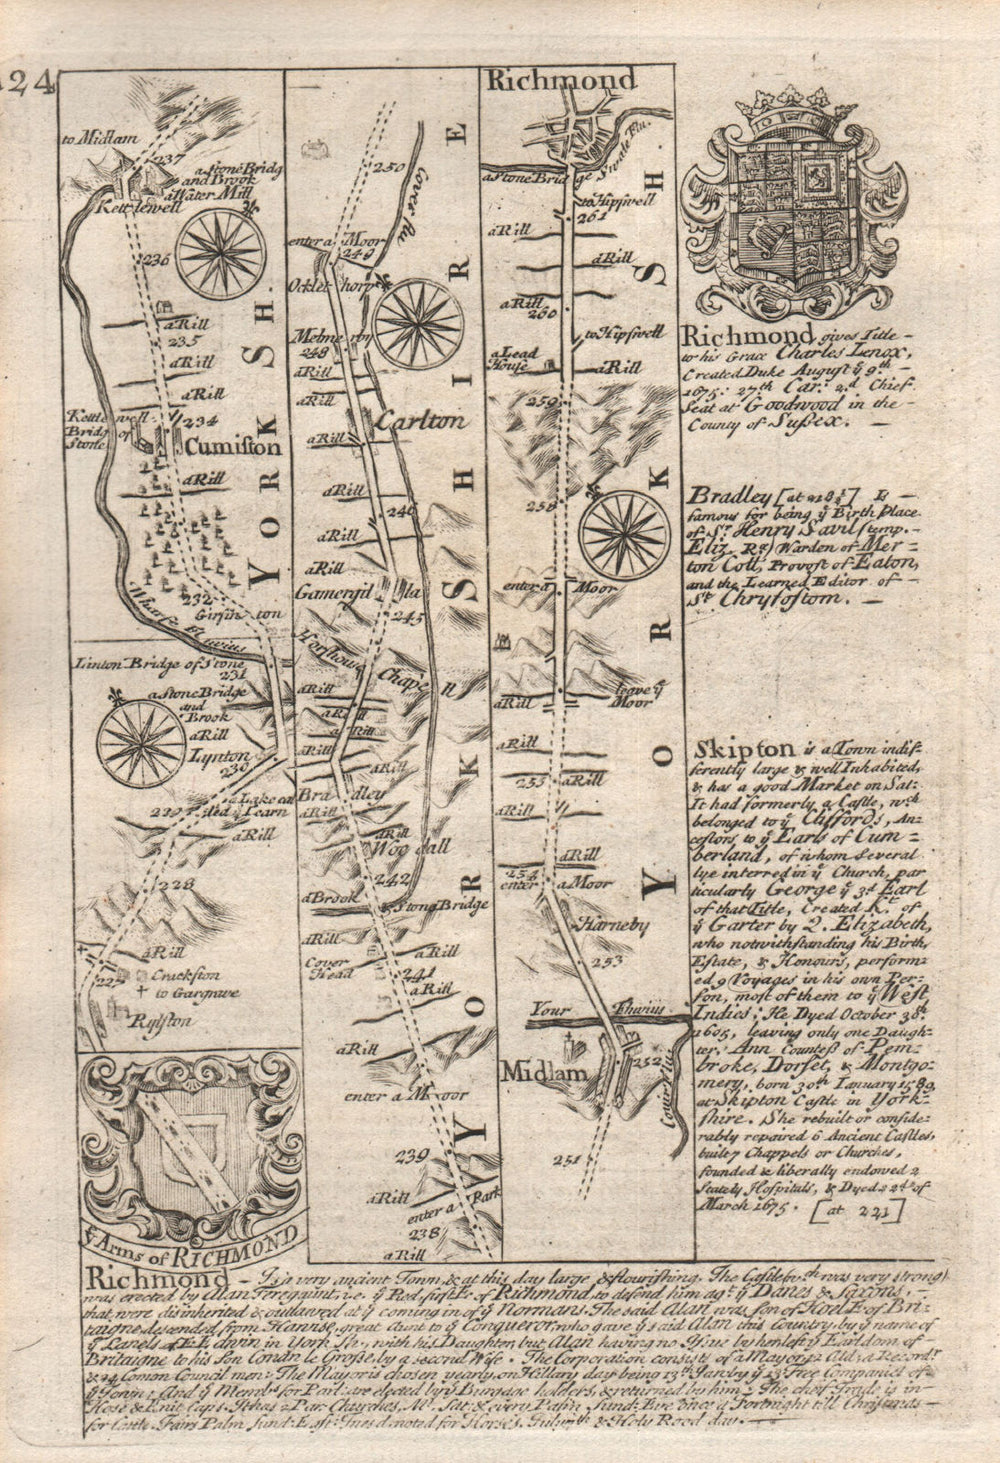 124
to Midlam
237
a Stone Bridg
and Brook
a Water Mill
Kettlewell
236
a Rill
235
a Rill
a Rill
Kettlewell
Bridg of
Stone
234
Cumiston
a Rill
232
Girsington
Wharfe Fluvius
Linton Bridge of Stone
231
a Stone Bridge
and
Brook
a Rill
Lynton
230
229
a Rill
228
a Rill
227
Crackston
to Gargrave
Rylston
YORKSH.
ye Arms of RICHMOND
250
Cover flu
enter a Moor
249
Melmerby
248
a Rill
Carlton
a Rill
a Rill
246
a Rill
a Rill
245
Horshouse
Chapell
a Rill
a Rill
a Rill
a Rill
a Rill
Bradley
a Rill
a Rill
Woodall
242
a Brook
a Stone Bridge
a Rill
Cover
Head
a Rill
241
a Rill
a Rill
enter a Moor
239
a Rill
Park
enter a
238
a Rill
YORKSHIRE
Richmond
a Stone Bridge
Swale Flu.
to Hipswell
261
a Rill
a Rill
a Rill
260
to Hipswell
a Lead
House
a Rill
259
258
enter a Moor
a Rill
leave ye
Moor
a Rill
255
a Rill
a Rill
a Rill
254
enter a Moor
Harneby
253
Your Fluvius
Midlam
252
251
YORKSH.
Richmond gives Title
to his Grace Charles Lenox,
Created Duke August ye 9th
1675: 27th Car: 2.d Chief
Seat at Goodwood in the
County of Sussex. —
Bradley [at 218½] Is
famous for being ye Birth Place
of Sr. Henry Savil (temp.
Eliz. Rg) Warden of Mer=
ton Coll; Provost of Eaton,
and the Learned Editor of
St. Chrysostom. —
Skipton is a Town indif=
ferently large & well Inhabited,
& has a good Market on Sat:
It had formerly a Castle, wch
belonged to ye Cliffords, An=
cestors to ye Earls of Cum=
berland, of whom Several
lye interred in ye Church, par
ticularly George ye 3d Earl
of that Title, Created Kt. of
ye Garter by Q. Elizabeth,
who notwithstanding his Birth,
Estate, & Honours, perform=
ed 9 Voyages in his own Per=
son, most of them to ye West
Indies; He Dyed October 38th
1605, leaving only one Daugh=
ter, Ann Countess of Pem=
broke, Dorset, & Montgo=
mery, born 30th January 1589,
at Skipton Castle in York=
shire. She rebuilt or conside=
rably repaired 6 Ancient Castles,
built 7 Chappels or Churches,
founded & liberally endowed 2
Stately Hospitals, & Dyed 22d of
March 1675. [at 221]
Richmond — Is a very ancient Town, & at this day large & flourishing. The Castle was very strong
was erected by Alan i.e. ye Red first E: of Richmond, to defend him agt ye Danes & Saxons,
that were disinherited & outlawed at ye coming in of ye Normans. The said Alan was Son of Hoel E: of Bri=
taigne, descended from Hawise, great Aunt to ye Conqueror, who gave ye said Alan this Country, by ye name of
ye Lands of E: Edwin in York Sh., with his Daughter, but Alan having no Issue by her left ye Earldom of
Britaigne to his Son Conan le Grosse, by a second Wife. The Corporation consists of a Mayor, 12 Ald; a Recordr
& 24 Comon Council men: The Mayor is chosen yearly, on Hillary day being 13th Jan. by ye 13 Free Companies of
ye Town: And ye Membrs for Parl: are elected by ye Burgage holders, & returned by him: The chief Trade is in
Hose & Knit Caps. It has 2 Par. Churches, Mt. Sat: & every Palm Sund: Eve once a Fortnight till Christmas
for Cattle. Fairs Palm Sund: noted for Horses, & Holy Rood day.